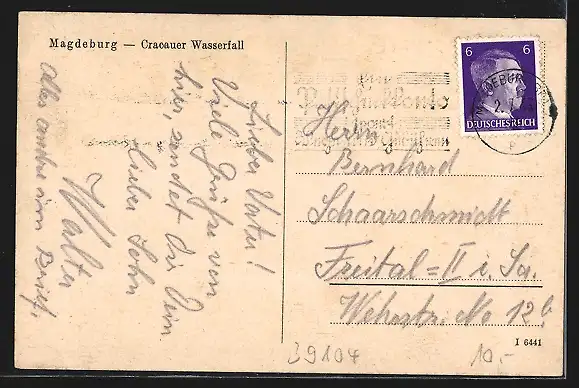 Magdeburg — Cracauer Wasserfall
Lieber Vater!
Viele Grüße von
hier, sendet Dir Dein
lieber Sohn
Walter
Alles andre im Brief.
6 6
DEUTSCHES REICH
Postscheckkonto
Herrn
Bernhard
Schaarschmidt
Freital=II i. Sa.
Wehrstr. No 12b
I 6441
39104
10.-